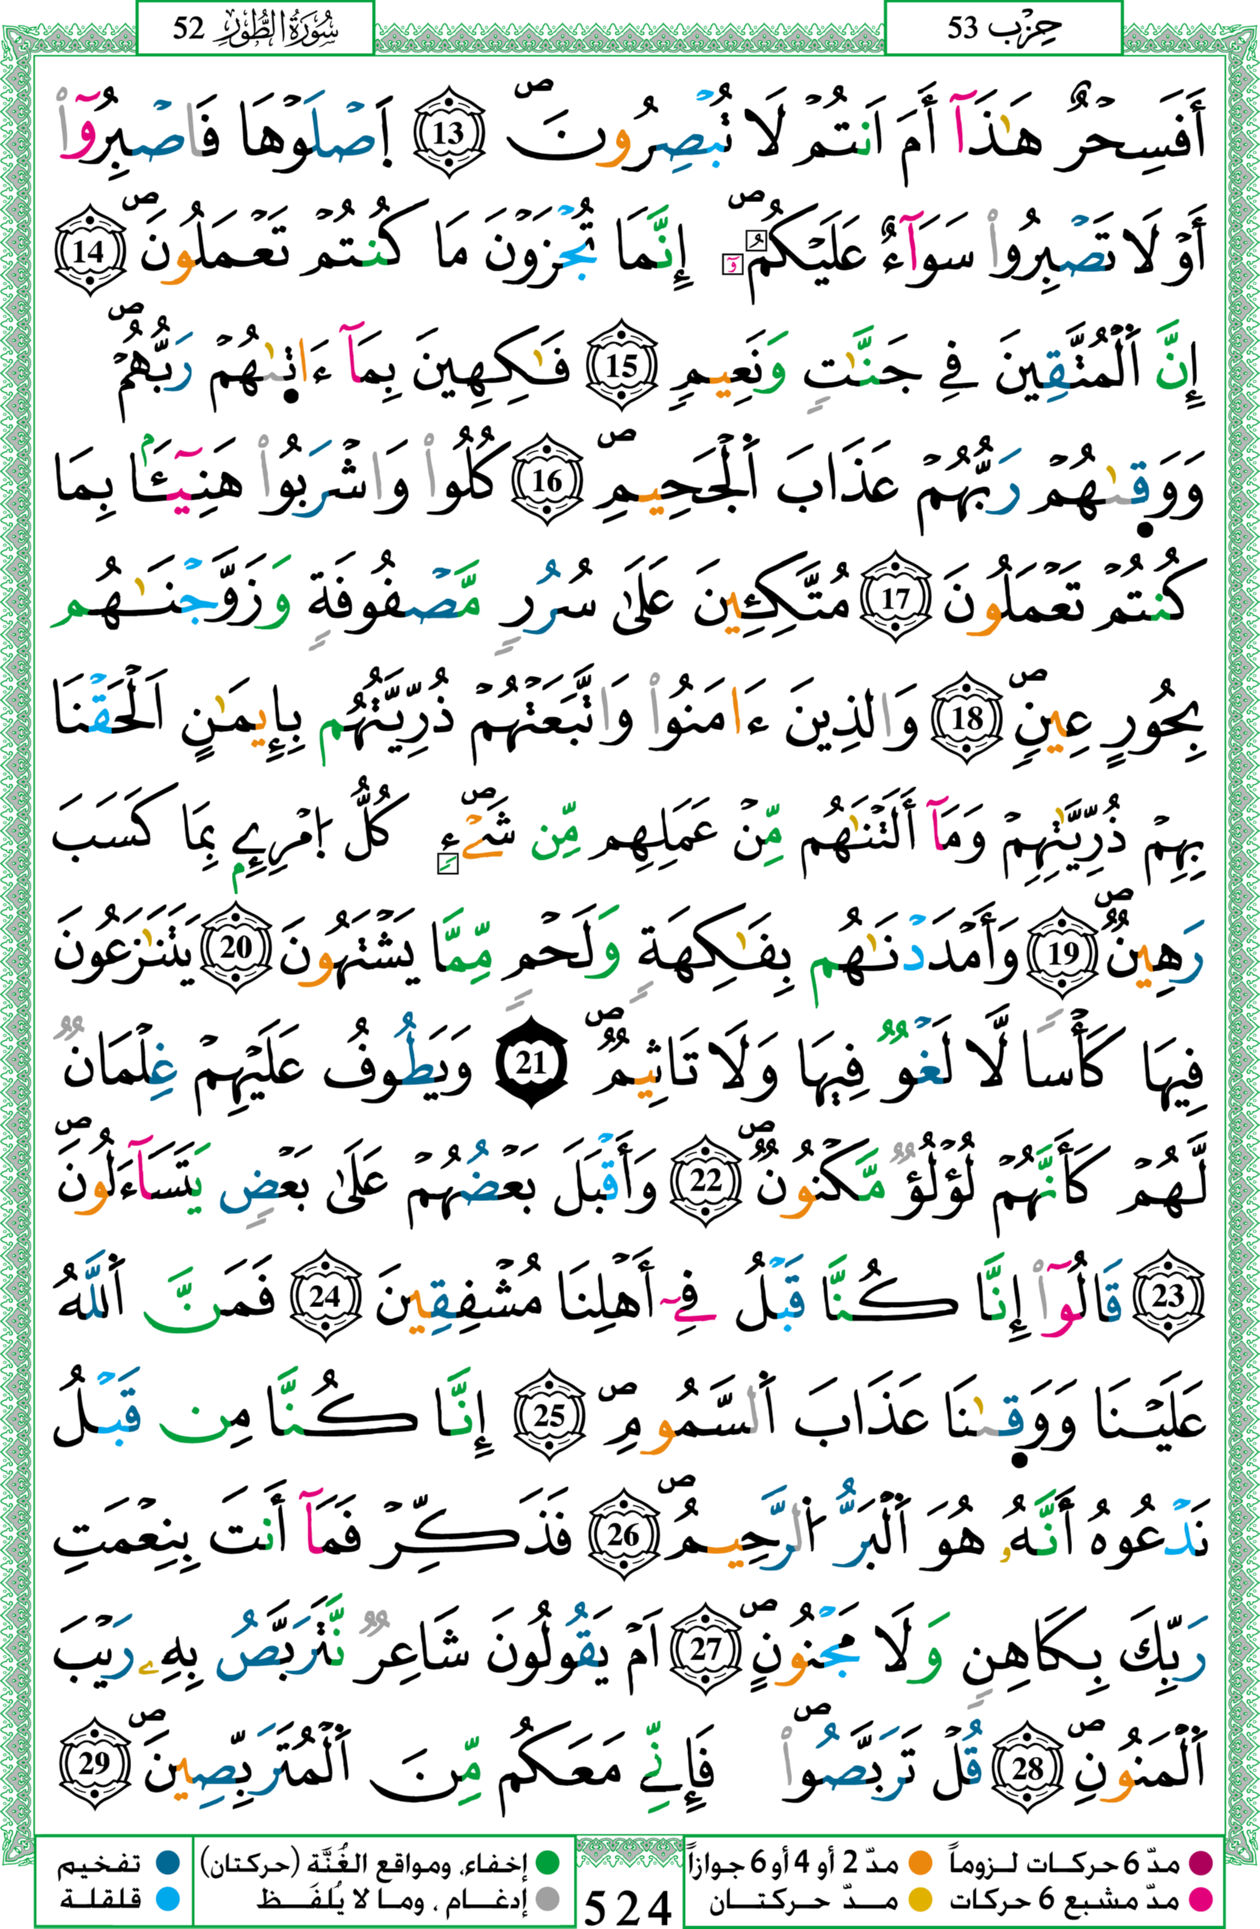 حِزْب 53 سُورَةُ الطُّورِ 52
أَفَسِحْرٌ هَـٰذَآ أَمَ اَنتُمْ لَا تُبْصِرُونَۖ 13 اَ۪صْلَوْهَا فَاصْبِرُوٓاْ
أَوْ لَا تَصْبِرُواْ سَوَآءٌ عَلَيْكُمُۥٓۖ إِنَّمَا تُجْزَوْنَ مَا كُنتُمْ تَعْمَلُونَۖ 14
إِنَّ اَ۬لْمُتَّقِينَ فِے جَنَّٰتٖ وَنَعِيمٖ 15 فَٰكِهِينَ بِمَآ ءَات۪ىٰهُمْ رَبُّهُمْۖ
وَوَق۪ىٰهُمْ رَبُّهُمْ عَذَابَ اَ۬لْجَحِيمِۖ 16 كُلُواْ وَاشْرَبُواْ هَنِيٓـَٔۢا بِمَا
كُنتُمْ تَعْمَلُونَ 17 مُتَّكِـِٔينَ عَلَىٰ سُرُرٖ مَّصْفُوفَةٖ وَزَوَّجْنَـٰهُم
بِحُورٍ عِينٖۖ 18 وَالذِينَ ءَامَنُواْ وَاتَّبَعَتْهُمْ ذُرِّيَّتُهُم بِإِيمَٰنٍ اَلْحَقْنَا
بِهِمْ ذُرِّيَّٰتِهِمْ وَمَآ أَلَتْنَٰهُم مِّنْ عَمَلِهِم مِّن شَےْءٖۖ كُلُّ اُ۪مْرِےِٕۢ بِمَا كَسَبَ
رَهِينٞۖ 19 وَأَمْدَدْنَٰهُم بِفَٰكِهَةٖ وَلَحْمٖ مِّمَّا يَشْتَهُونَ 20 يَتَنَٰزَعُونَ
فِيهَا كَأْساٗ لَّا لَغْوٞ فِيهَا وَلَا تَاثِيمٞۖ 21 وَيَطُوفُ عَلَيْهِمْ غِلْمَانٞ
لَّهُمْ كَأَنَّهُمْ لُؤْلُؤٞ مَّكْنُونٞۖ 22 وَأَقْبَلَ بَعْضُهُمْ عَلَىٰ بَعْضٖ يَتَسَآءَلُونَۖ
23 قَالُوٓاْ إِنَّا كُنَّا قَبْلُ فِےٓ أَهْلِنَا مُشْفِقِينَ 24 فَمَنَّ اَ۬للَّهُ
عَلَيْنَا وَوَق۪ىٰنَا عَذَابَ اَ۬لسَّمُومِۖ 25 إِنَّا كُنَّا مِن قَبْلُ
نَدْعُوهُ أَنَّهُۥ هُوَ اَ۬لْبَرُّ اُ۬لرَّحِيمُۖ 26 فَذَكِّرْ فَمَآ أَنتَ بِنِعْمَتِ
رَبِّكَ بِكَاهِنٖ وَلَا مَجْنُونٍۖ 27 اَمْ يَقُولُونَ شَاعِرٞ نَّتَرَبَّصُ بِهِۦ رَيْبَ
اَ۬لْمَنُونِۖ 28 قُلْ تَرَبَّصُواْۖ فَإِنِّے مَعَكُم مِّنَ اَ۬لْمُتَرَبِّصِينَۖ 29
مدّ 6 حركات لـزوماً مدّ 2 أو 4 أو 6 جوازاً إخفاء، ومواقع الغُنَّة (حركتان) تفخيم
مدّ مشبع 6 حركات مــدّ حركتــان إدغــام ، ومـا لا يُلفَــظ قلقلة
524